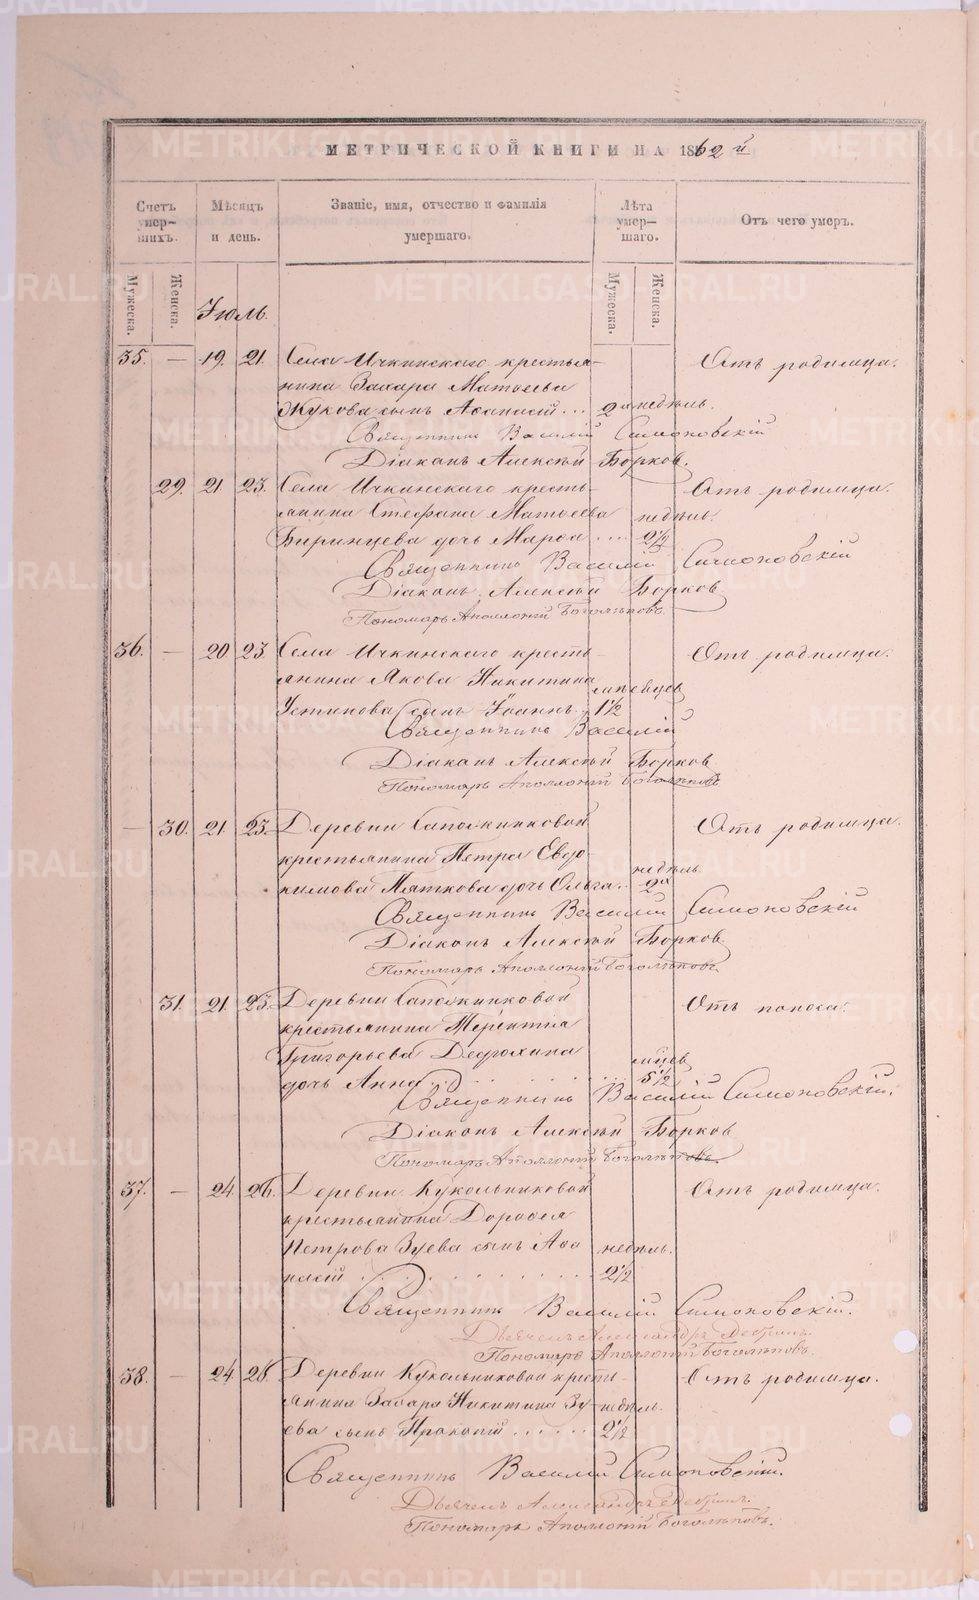 МЕТРИЧЕСКОЙ КНИГИ НА 1862 й
Счетъ умер-шихъ.
Мѣсяцъ и день.
Званіе, имя, отчество и фамилія умершаго.
Лѣта умер-шаго.
Отъ чего умеръ.
Мужеска.
Женска.
Мужеска.
Женска.
Іюль.
35. — 19. 21. Села Ичкинскаго крестья- Отъ родимца.
нина Захара Матѳеева
Жукова сынъ Аѳанасій ... 2хъ недѣль.
Священникъ Василій Симоновскій
Діаконъ Алексѣй Борковъ.
29. 21. 23. Села Ичкинскаго кресть- Отъ родимца.
янина Стефана Матѳеева недѣль.
дочь Марѳа .... 2½
Священникъ Василій Симоновскій
Діаконъ Алексѣй Борковъ
Пономарь Аполлоній Боголѣповъ.
36. — 20 23 Села Ичкинскаго кресть- Отъ родимца.
янина Якова Никитина
Устинова сынъ Іоаннъ. 1½
Священникъ Василій
Діаконъ Алексѣй Борковъ
Пономарь Аполлоній Боголѣповъ
— 30. 21. 23. Деревни Сапожниковой Отъ родимца.
крестьянина Петра Евдо-
кимова Мяткова дочь Ольга. недѣль 2хъ
Священникъ Василій Симоновскій
Діаконъ Алексѣй Борковъ
Пономарь Аполлоній Боголѣповъ.
31. 21. 23. Деревни Сапожниковой Отъ поноса.
крестьянина Терентія
Григорьева Дедюхина
дочь Анна .......... 5½
Священникъ Василій Симоновскій.
Діаконъ Алексѣй Борковъ
Пономарь Аполлоній Боголѣповъ.
37. — 24. 26. Деревни Кукольниковой Отъ родимца.
крестьянина Дороѳея
Петрова Зуева сынъ Аѳа недѣль.
насій .......... 2½
Священникъ Василій Симоновскій.
Александръ
Пономарь Аполлоній Боголѣповъ.
38. — 24. 26. Деревни Кукольниковой кресть- Отъ родимца.
янина Захара Никитина Зу- недѣль.
ева сынъ Прокопій ...... 2½
Священникъ Василій Симоновскій.
Александръ
Пономарь Аполлоній Боголѣповъ.
METRIKI.GASO-URAL.RU